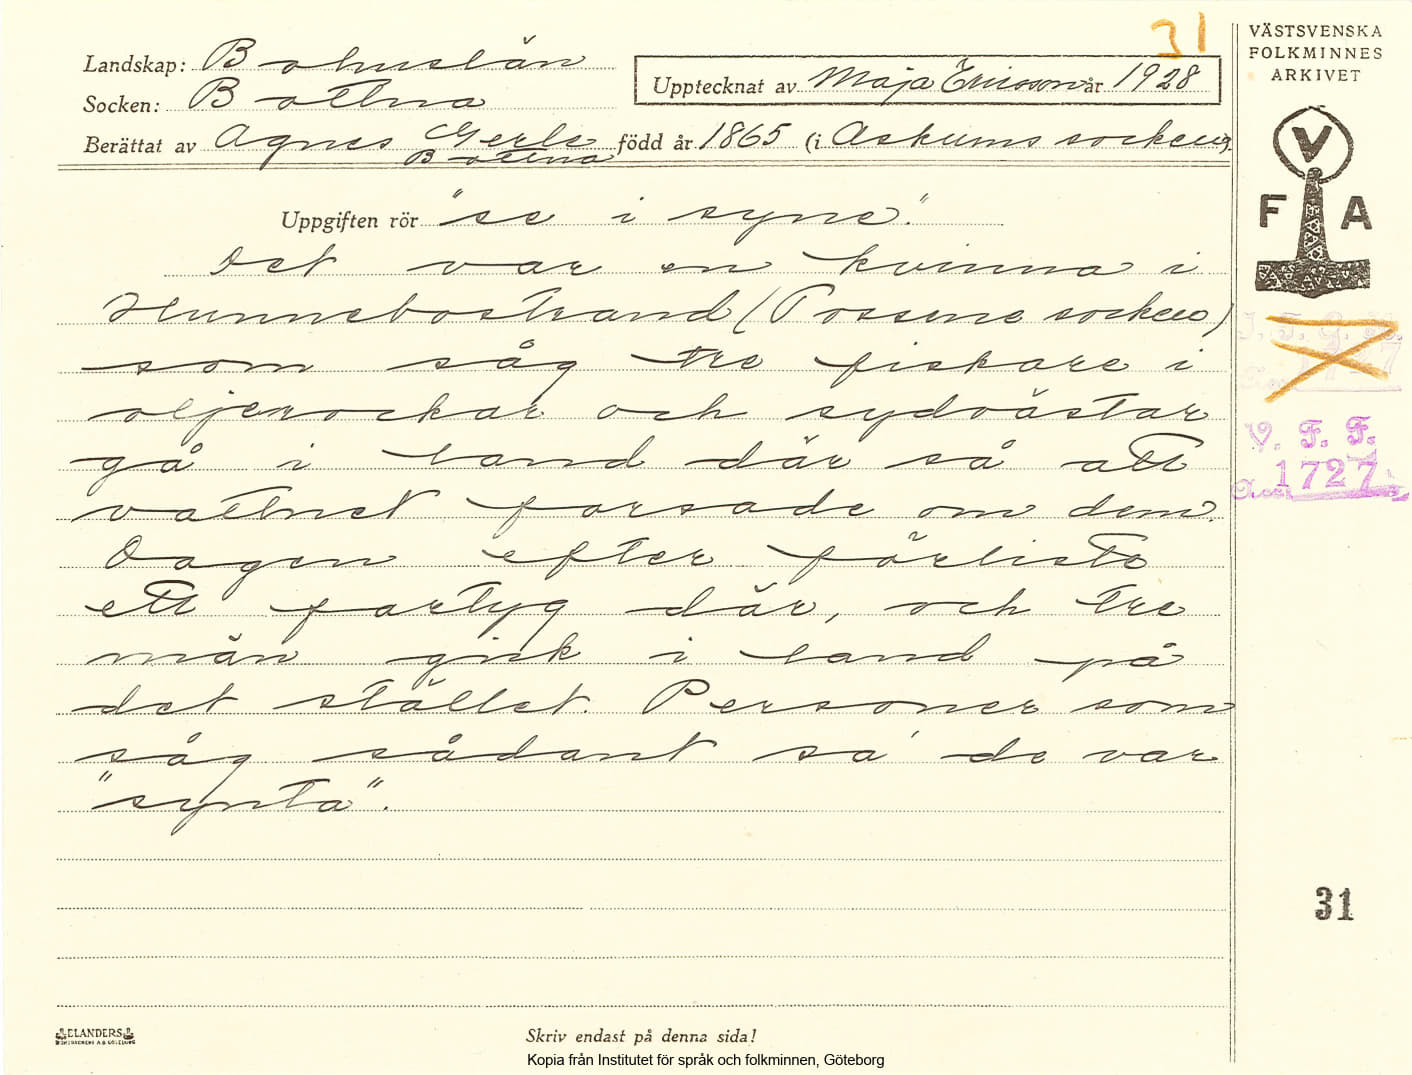 31
VÄSTSVENSKA
FOLKMINNES
ARKIVET
Landskap: Bohuslän
Upptecknat av Maja Ericson år 1928
Socken: Bottna
Berättat av Agnes Gerle född år 1865 (i Askums socken).
Bottna
V
F A
Uppgiften rör "se i syne".
Det var en kvinna i
Hunnebostrand (Tossene socken)
som såg tre fiskare i
oljerockar och sydvästar
gå i land där så att
vattnet forsade om dem.
Dagen efter förliste
ett fartyg där, och tre
män gick i land på
det stället. Personer som
såg sådant sa' de var
"synta".
V. F. F.
Acc. 1727
31
ELANDERS
Skriv endast på denna sida!
Kopia från Institutet för språk och folkminnen, Göteborg